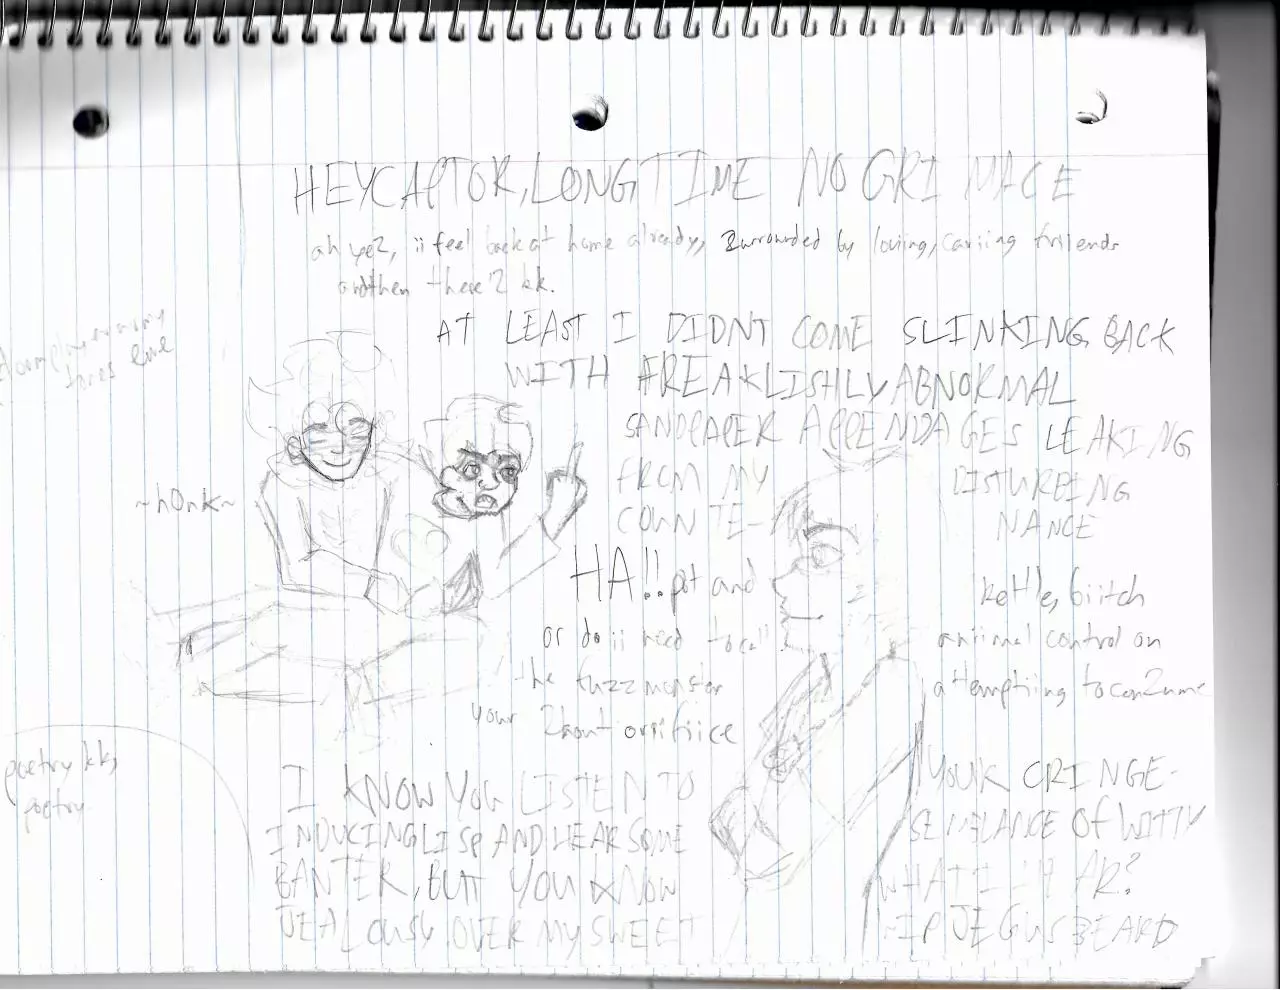 HEY CAPTOR, LONG TIME NO GRIMACE
ah ye2, ii feel back at home already, 2urrounded by loviing, cariing friiends
and then there'2 kk.
AT LEAST I DIDNT COME SLINKING BACK
WITH FREAKLISHLY ABNORMAL
SANDPAPER APPENDAGES LEAKING
FROM MY DISTURBING
COUNTE- NANCE
~h0nk~
HA!! pot and kettle, biitch
or do ii need to call aniimal control on
the fuzz monster attemptiing to con2ume
your 2nout oriifiice
poetry kk,
poetry
I KNOW YOU LISTEN TO YOUR CRINGE-
INDUCING LISP AND HEAR SOME SEMBLANCE OF WITTY
BANTER, BUT YOU KNOW WHAT I HEAR?
JEALOUSY OVER MY SWEET JEGUS BEARD